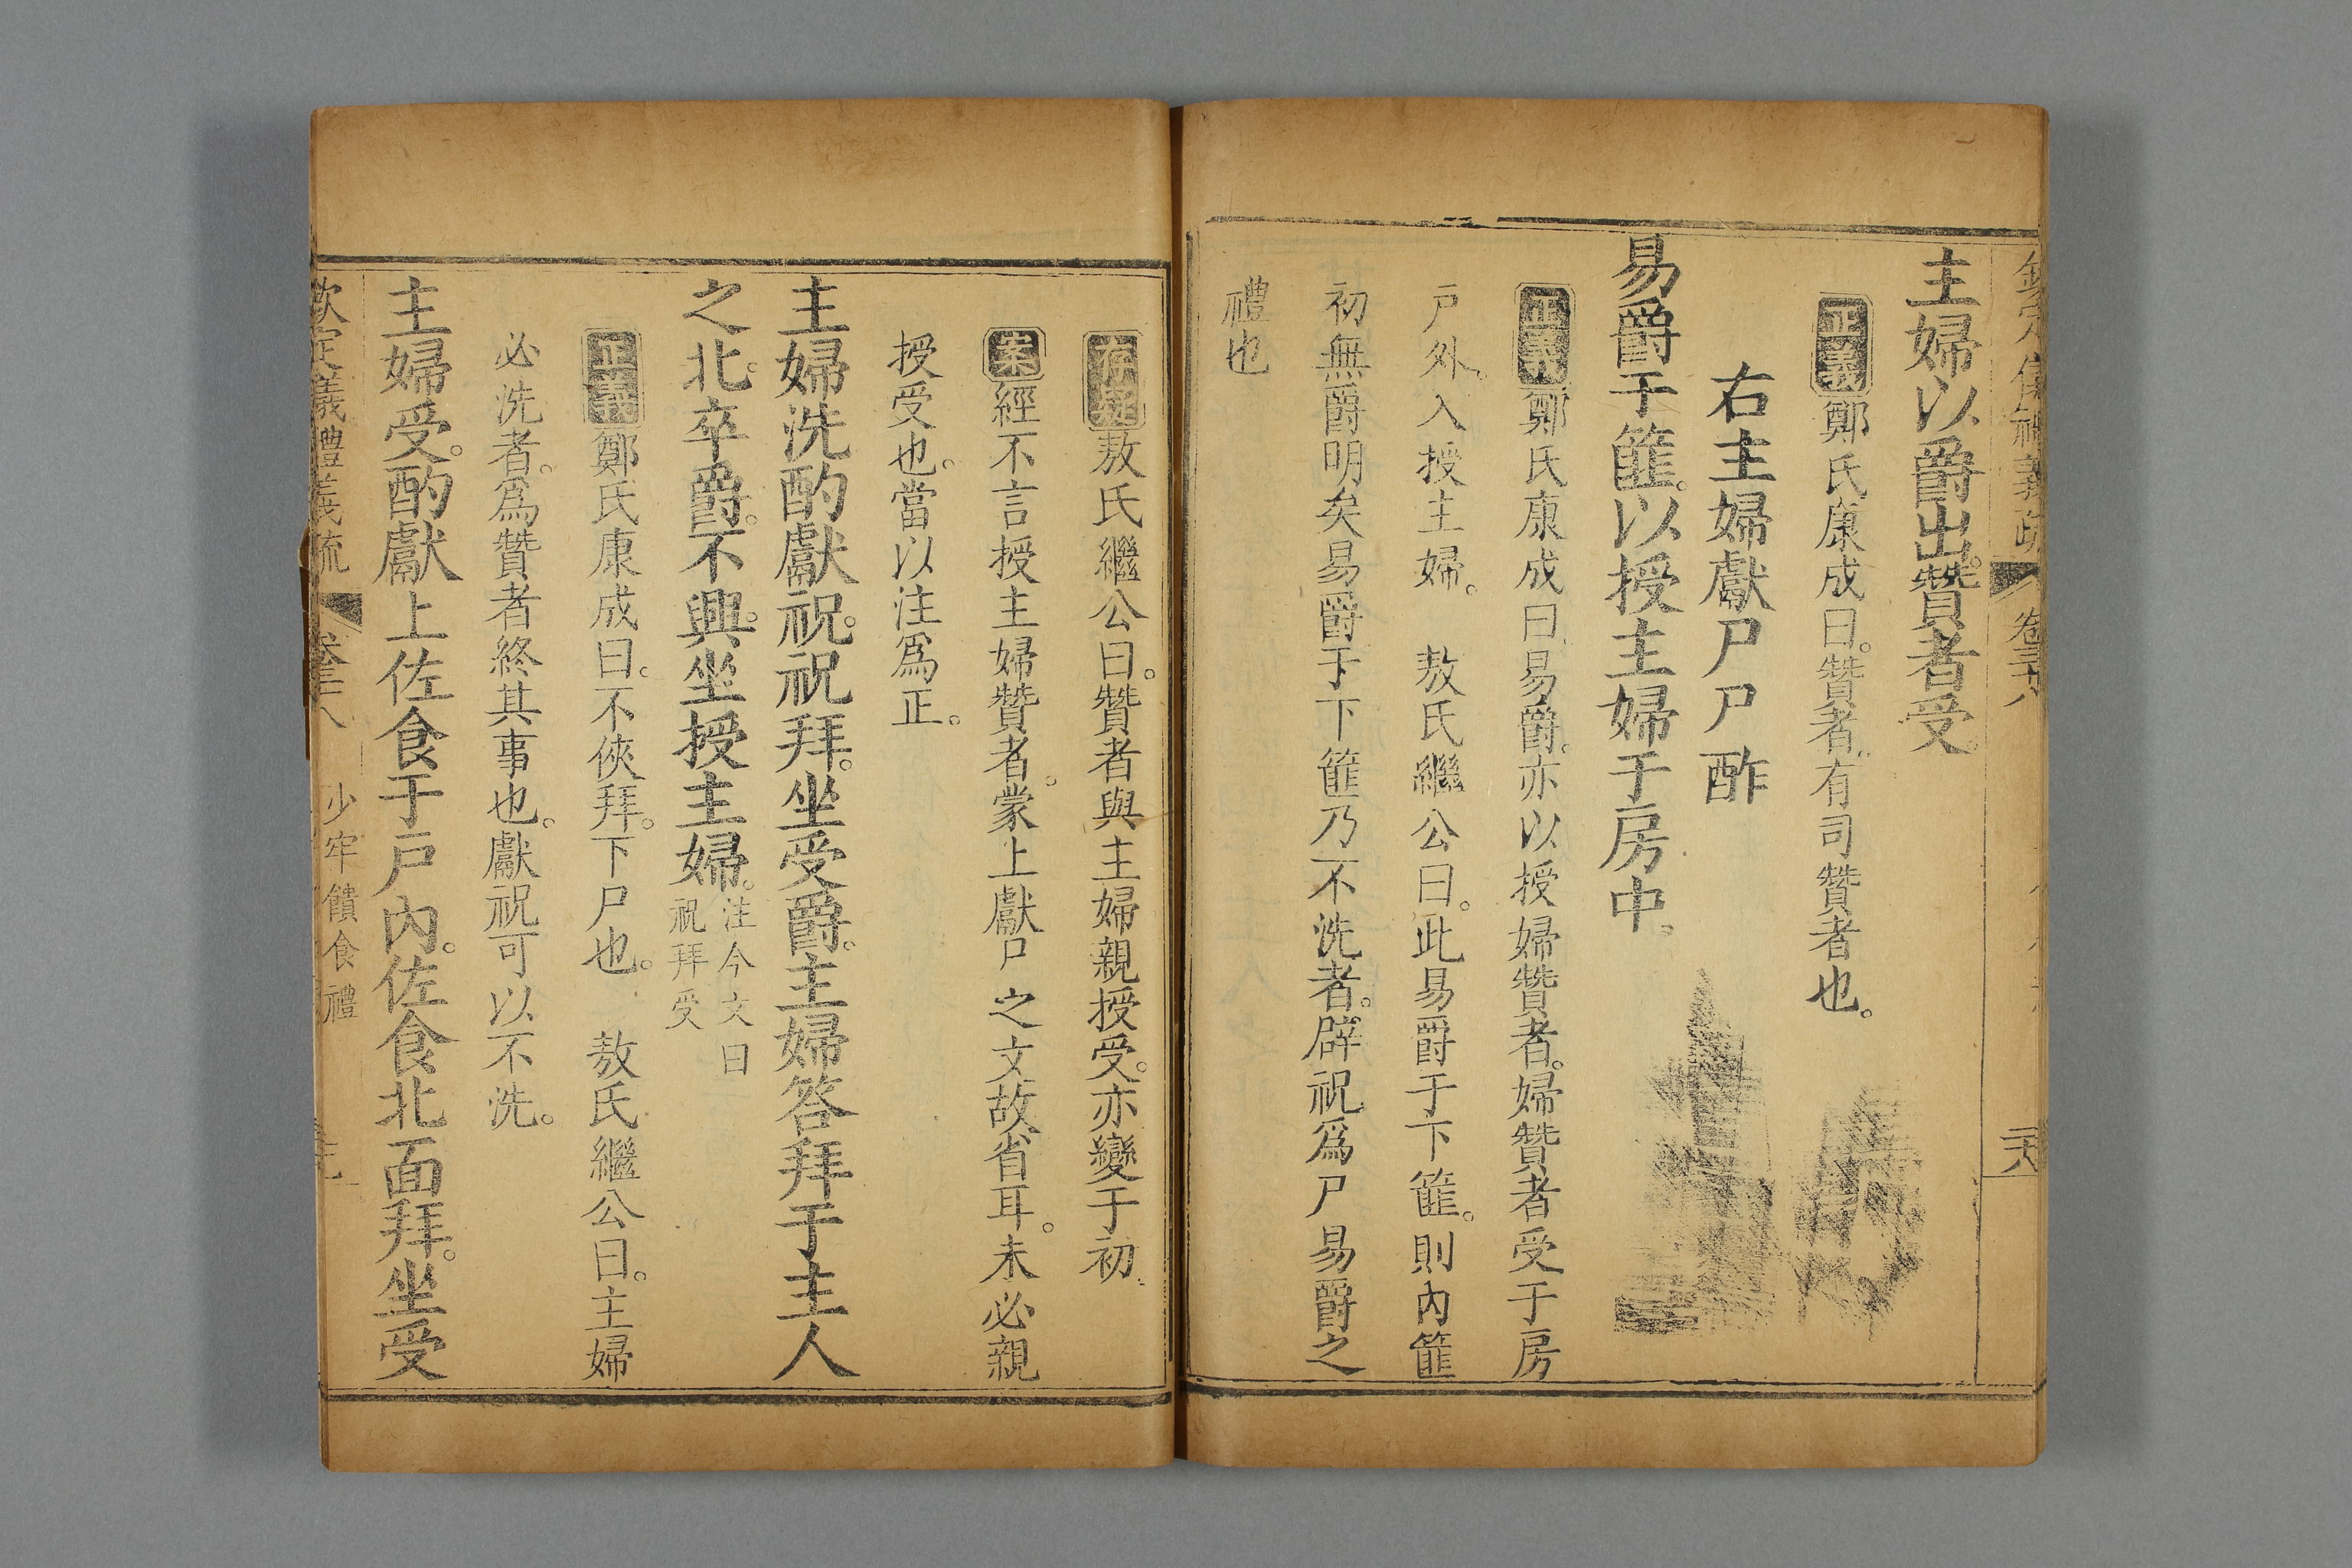 主婦以爵出。贊者受。
正義鄭氏康成曰。贊者。有司贊者也。
右主婦獻尸尸酢
易爵于篚。以授主婦于房中。
正義鄭氏康成曰。易爵。亦以授婦贊者。婦贊者受于房
戶外。入授主婦。 敖氏繼公曰。此易爵于下篚。則內篚
初無爵明矣易爵于下篚乃不洗者。辟祝爲尸易爵之
禮也
存疑敖氏繼公曰。贊者與主婦親授受。亦變于初。
案經不言授主婦贊者。蒙上獻尸之文故省耳。未必親
授受也。當以注爲正。
主婦洗酌獻祝。祝拜。坐受爵。主婦答拜于主人
之北。卒爵。不興。坐授主婦。注今文曰
祝拜受
正義鄭氏康成曰。不俠拜。下尸也。 敖氏繼公曰。主婦
必洗者。爲贊者終其事也。獻祝可以不洗。
主婦受。酌獻上佐食于戶內。佐食北面拜。坐受
欽定儀禮義疏 卷三十八 少牢饋食禮